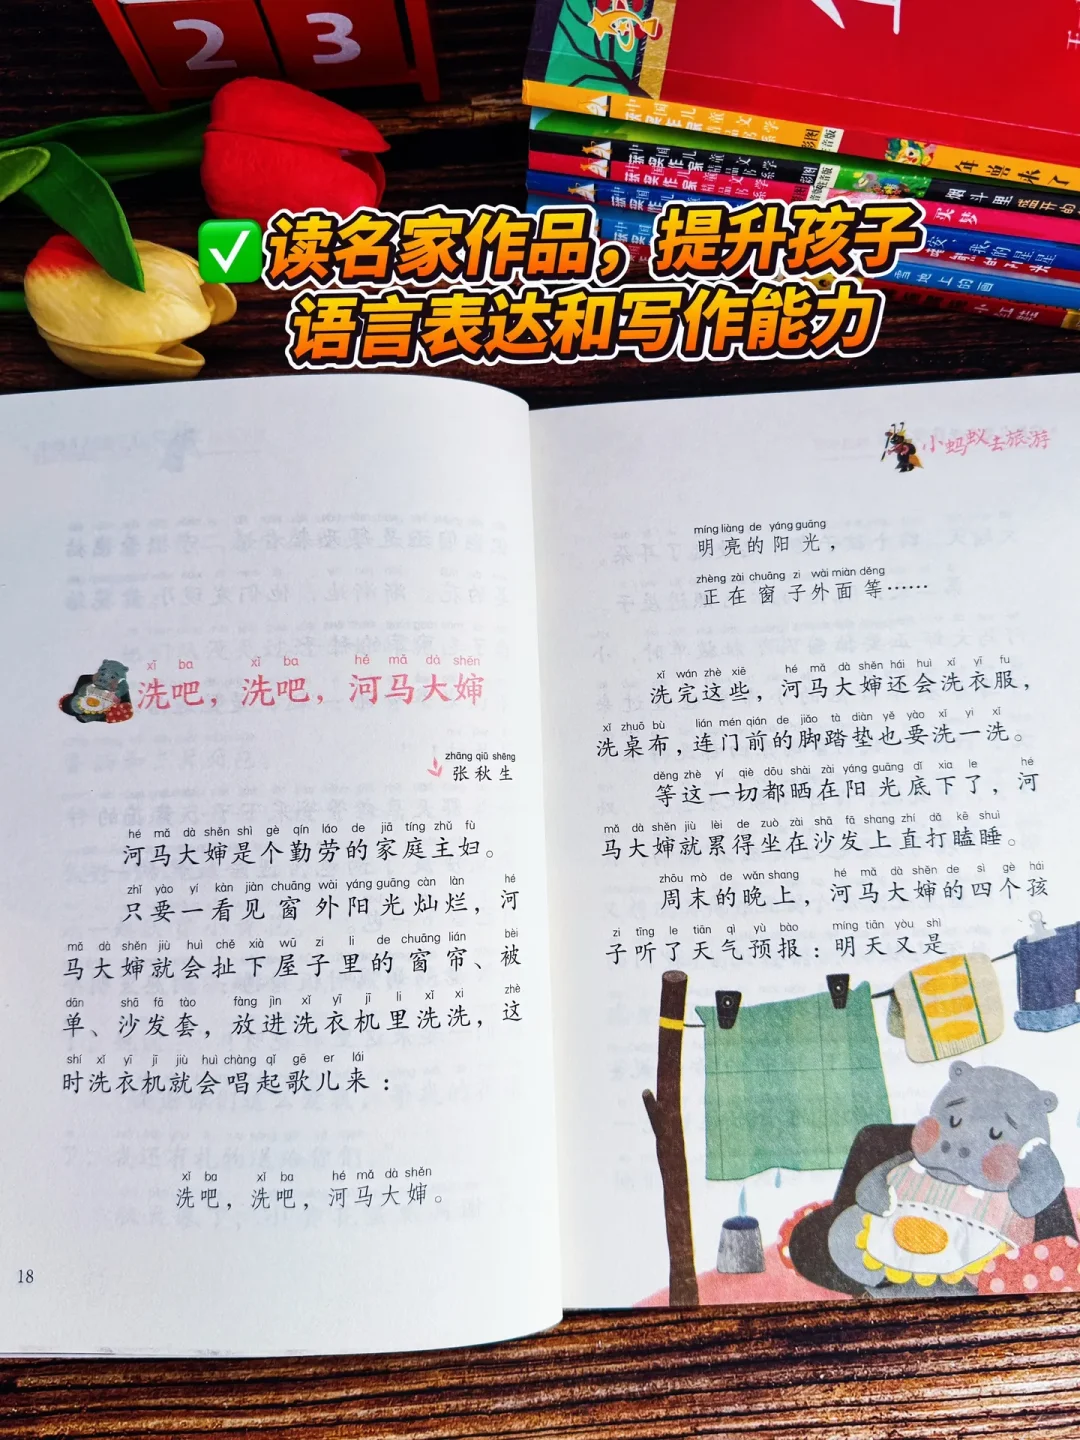 23
中国儿童文学
获奖作家
精品书系
彩图
注音版
年兽来了
中国儿童文学
获奖作家
精品书系
彩图
注音版
烟斗里
买梦
雪地上的画
✅读名家作品，提升孩子
语言表达和写作能力
xǐ ba xǐ ba hé mǎ dà shěn
洗吧，洗吧，河马大婶
zhāng qiū shēng
张秋生
hé mǎ dà shěn shì gè qín láo de jiā tíng zhǔ fù
河马大婶是个勤劳的家庭主妇。
zhǐ yào yí kàn jiàn chuāng wài yáng guāng càn làn hé
只要一看见窗外阳光灿烂，河
mǎ dà shěn jiù huì chě xià wū zi li de chuāng lián bèi
马大婶就会扯下屋子里的窗帘、被
dān shā fā tào fàng jìn xǐ yī jī li xǐ xi zhè
单、沙发套，放进洗衣机里洗洗，这
shí xǐ yī jī jiù huì chàng qǐ gē er lái
时洗衣机就会唱起歌儿来：
xǐ ba xǐ ba hé mǎ dà shěn
洗吧，洗吧，河马大婶。
18
小蚂蚁去旅游
míng liàng de yáng guāng
明亮的阳光，
zhèng zài chuāng zi wài miàn děng
正在窗子外面等……
xǐ wán zhè xiē hé mǎ dà shěn hái huì xǐ yī fu
洗完这些，河马大婶还会洗衣服，
xǐ zhuō bù lián mén qián de jiǎo tà diàn yě yào xǐ yi xǐ
洗桌布，连门前的脚踏垫也要洗一洗。
děng zhè yí qiè dōu shài zài yáng guāng dǐ xia le hé
等这一切都晒在阳光底下了，河
mǎ dà shěn jiù lèi de zuò zài shā fā shang zhí dǎ kē shuì
马大婶就累得坐在沙发上直打瞌睡。
zhōu mò de wǎn shang hé mǎ dà shěn de sì gè hái
周末的晚上，河马大婶的四个孩
zi tīng le tiān qì yù bào míng tiān yòu shì
子听了天气预报：明天又是